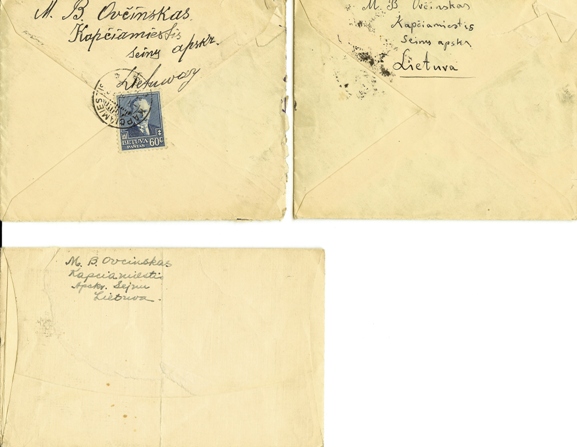 M. B. Ovčinskas.
Kapčiamiestis
Seinų apskr.
Lietuvoy
KAPČIAMIESTIS
LIETUVA
PAŠTAS
60 c
M B Ovčinskas
Kapčiamiestis
Seinų apskr
Lietuva
M. B. Ovcinskas
Kapciamiestis
Apskr. Sejnu
Lietuva.